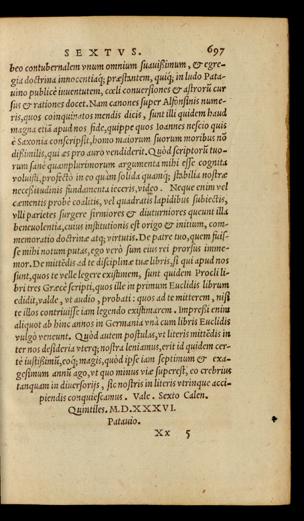 SEXTVS. 697
beo contubernalem vnum omnium suauißimum, & egre-
gia doctrina innocentiaq́; præstantem, quiq́; in ludo Pata-
uino publicè iuuentutem, cœli conuersiones & astrorũ cur
sus & rationes docet. Nam canones super Alfonsinis nume-
ris, quos coinquinatos mendis dicis, sunt illi quidem haud
magna etiã apud nos fide, quippe quos Ioannes nescio quis
è Saxonia conscripsit, homo maiorum suorum moribus nõ
dißimilis, qui æs pro auro vendiderit. Quòd scriptorũ tuo-
rum sanè quamplurimorum argumenta mihi esse cognita
voluisti, profectò in eo quàm solida quamq́; stabilia nostræ
necessitudinis fundamenta ieceris, video. Neque enim vel
cæmentis probè coalitis, vel quadratis lapidibus subiectis,
vlli parietes surgere firmiores & diuturniores queunt illa
beneuolentia, cuius institutionis est origo & initium, com-
memoratio doctrinæ atq; virtutis. De patre tuo, quem fuis-
se mihi notum putas, ego verò sum eius rei prorsus imme-
mor. De mittẽdis ad te disciplinæ tuæ libris, si qui apud nos
sunt, quos te velle legere existimem, sunt quidem Procli li-
bri tres Græcè scripti, quos ille in primum Euclidis librum
edidit, valde, vt audio, probati: quos ad te mitterem, nisi
te illos contriuisse iam legendo existimarem. Impreßi enim
aliquot ab hinc annos in Germania vnà cum libris Euclidis
vulgò veneunt. Quòd autem postulas, vt literis mittẽdis in
ter nos desideria vterq; nostra leniamus, erit id quidem cer-
tè iustißimũ, eoq́; magis, quòd ipse iam septimum & exa-
gesimum annũ ago, vt quo minus viæ superest, eo crebrius
tanquam in diuersorijs, sic nostris in literis vtrinque acci-
piendis conquiescamus. Vale. Sexto Calen.
Quintiles. M.D.XXXVI.
Patauio.
Xx 5